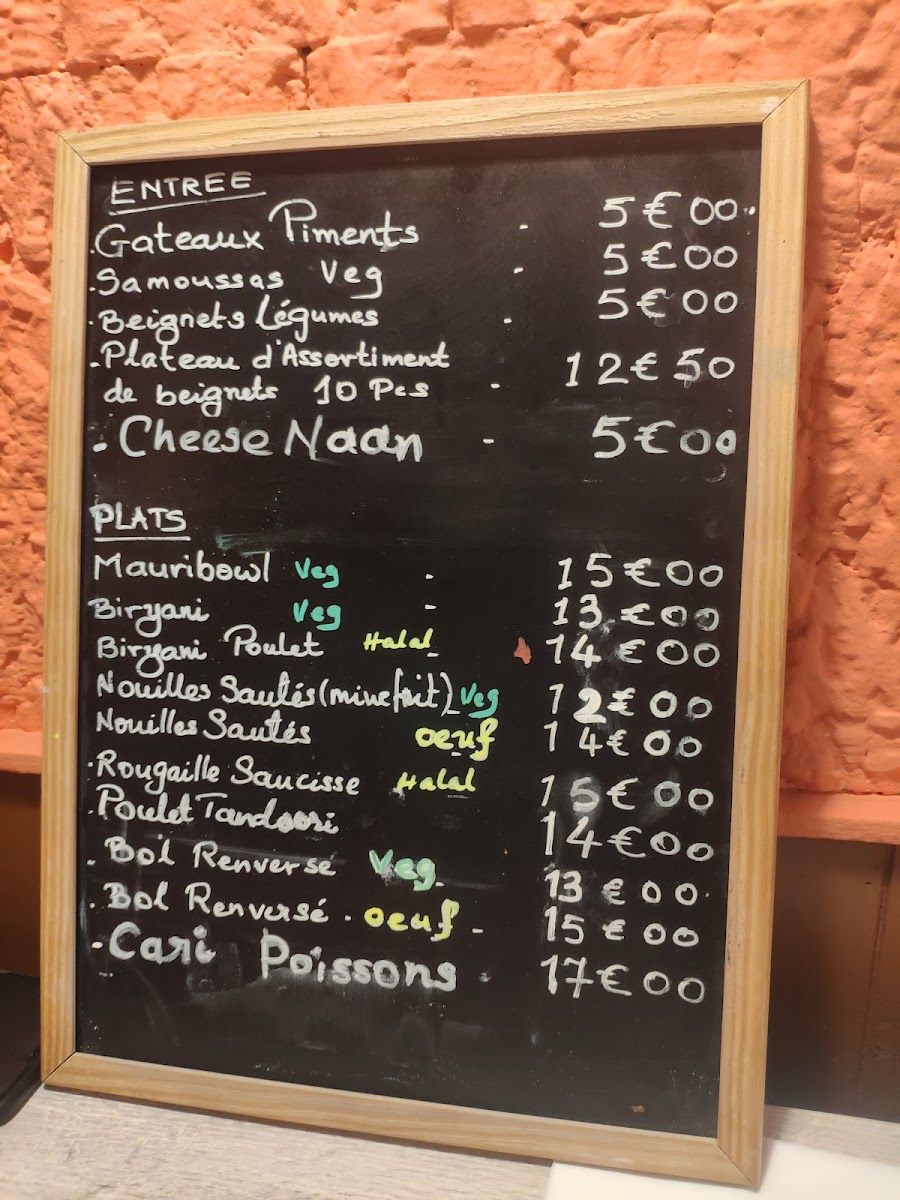 ENTREE
.Gateaux Piments - 5€00.
.Samoussas Veg - 5€00
.Beignets Légumes - 5€00
.Plateau d'Assortiment
de beignets 10 Pcs - 12€50
- Cheese Naan - 5€00
PLATS
Mauribowl Veg - 15€00
Biryani Veg - 13€00
Biryani Poulet Halal - 14€00
Nouilles Sautés (minefrit) Veg 12€00
Nouilles Sautés oeuf 14€00
.Rougaille Saucisse Halal 15€00
.Poulet Tandoori 14€00
. Bol Renversé Veg - 13€00
. Bol Renversé . oeuf - 15€00
- Cari Poissons - 17€00